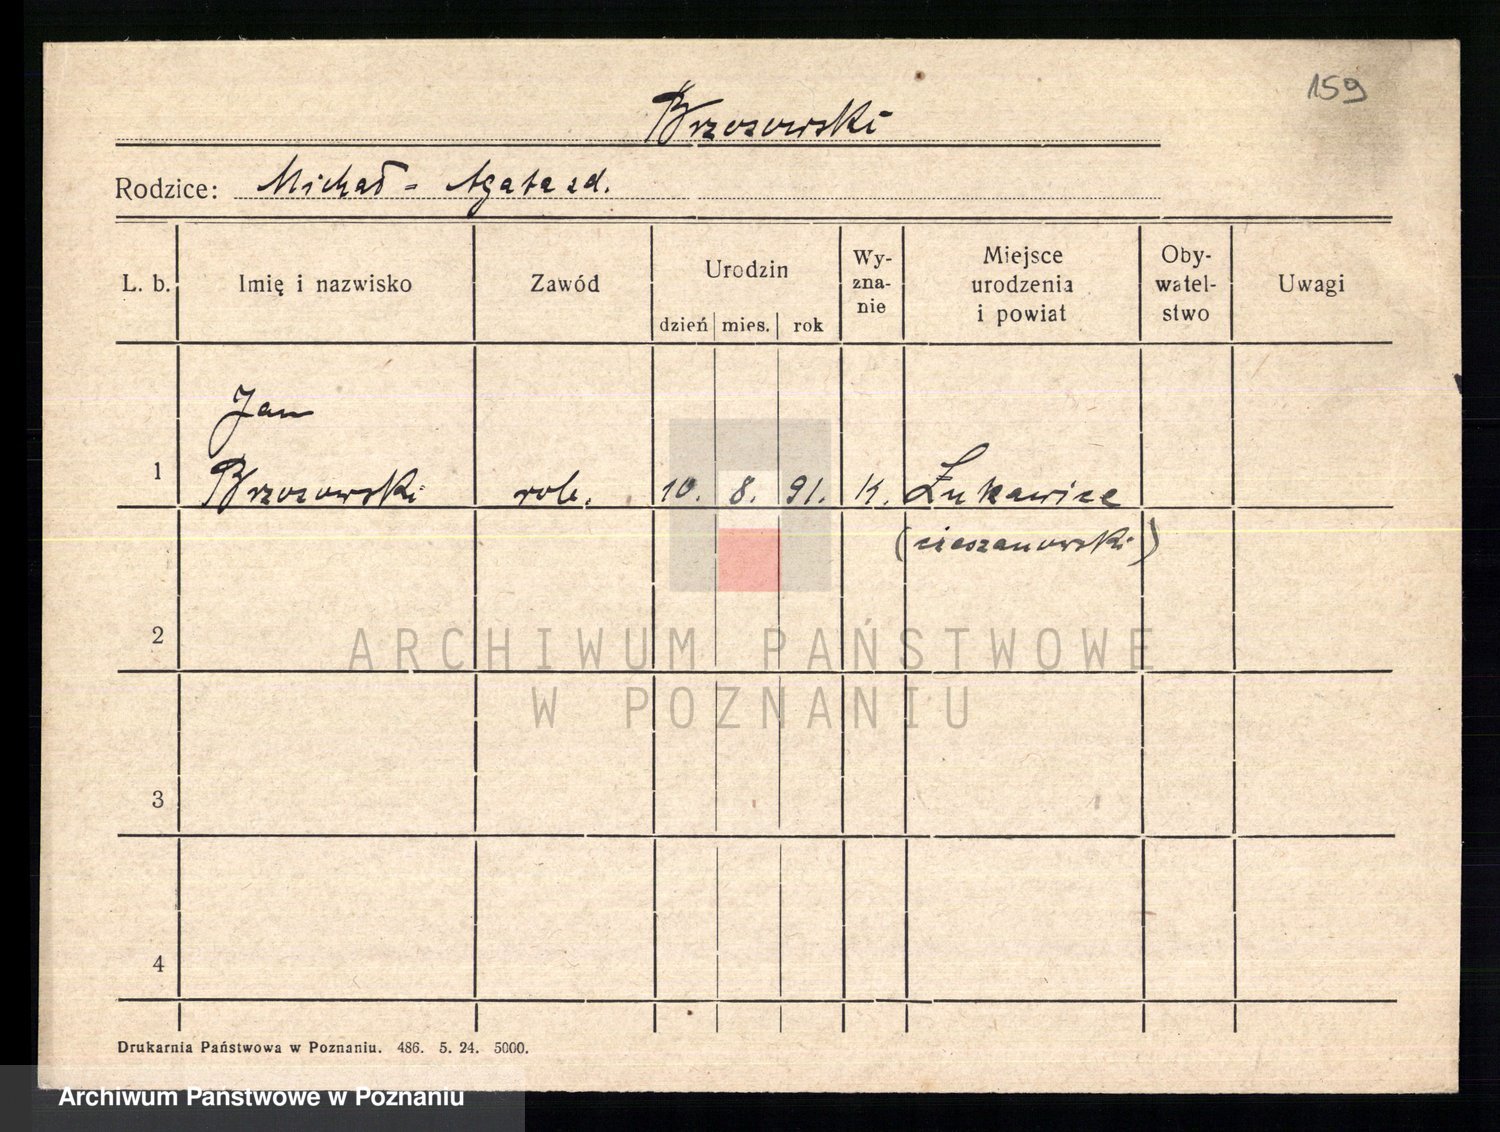 159
Brzozowski
Rodzice: Michał - Agata zd.
L. b. Imię i nazwisko Zawód Urodzin dzień mies. rok Wy-zna-nie Miejsce urodzenia i powiat Oby-watel-stwo Uwagi
Jan
1 Brzozowski rob. 10. 8. 91. k. Łukawice
(cieszanowski)
2
ARCHIWUM PAŃSTWOWE
W POZNANIU
3
4
Drukarnia Państwowa w Poznaniu. 486. 5. 24. 5000.
Archiwum Państwowe w Poznaniu